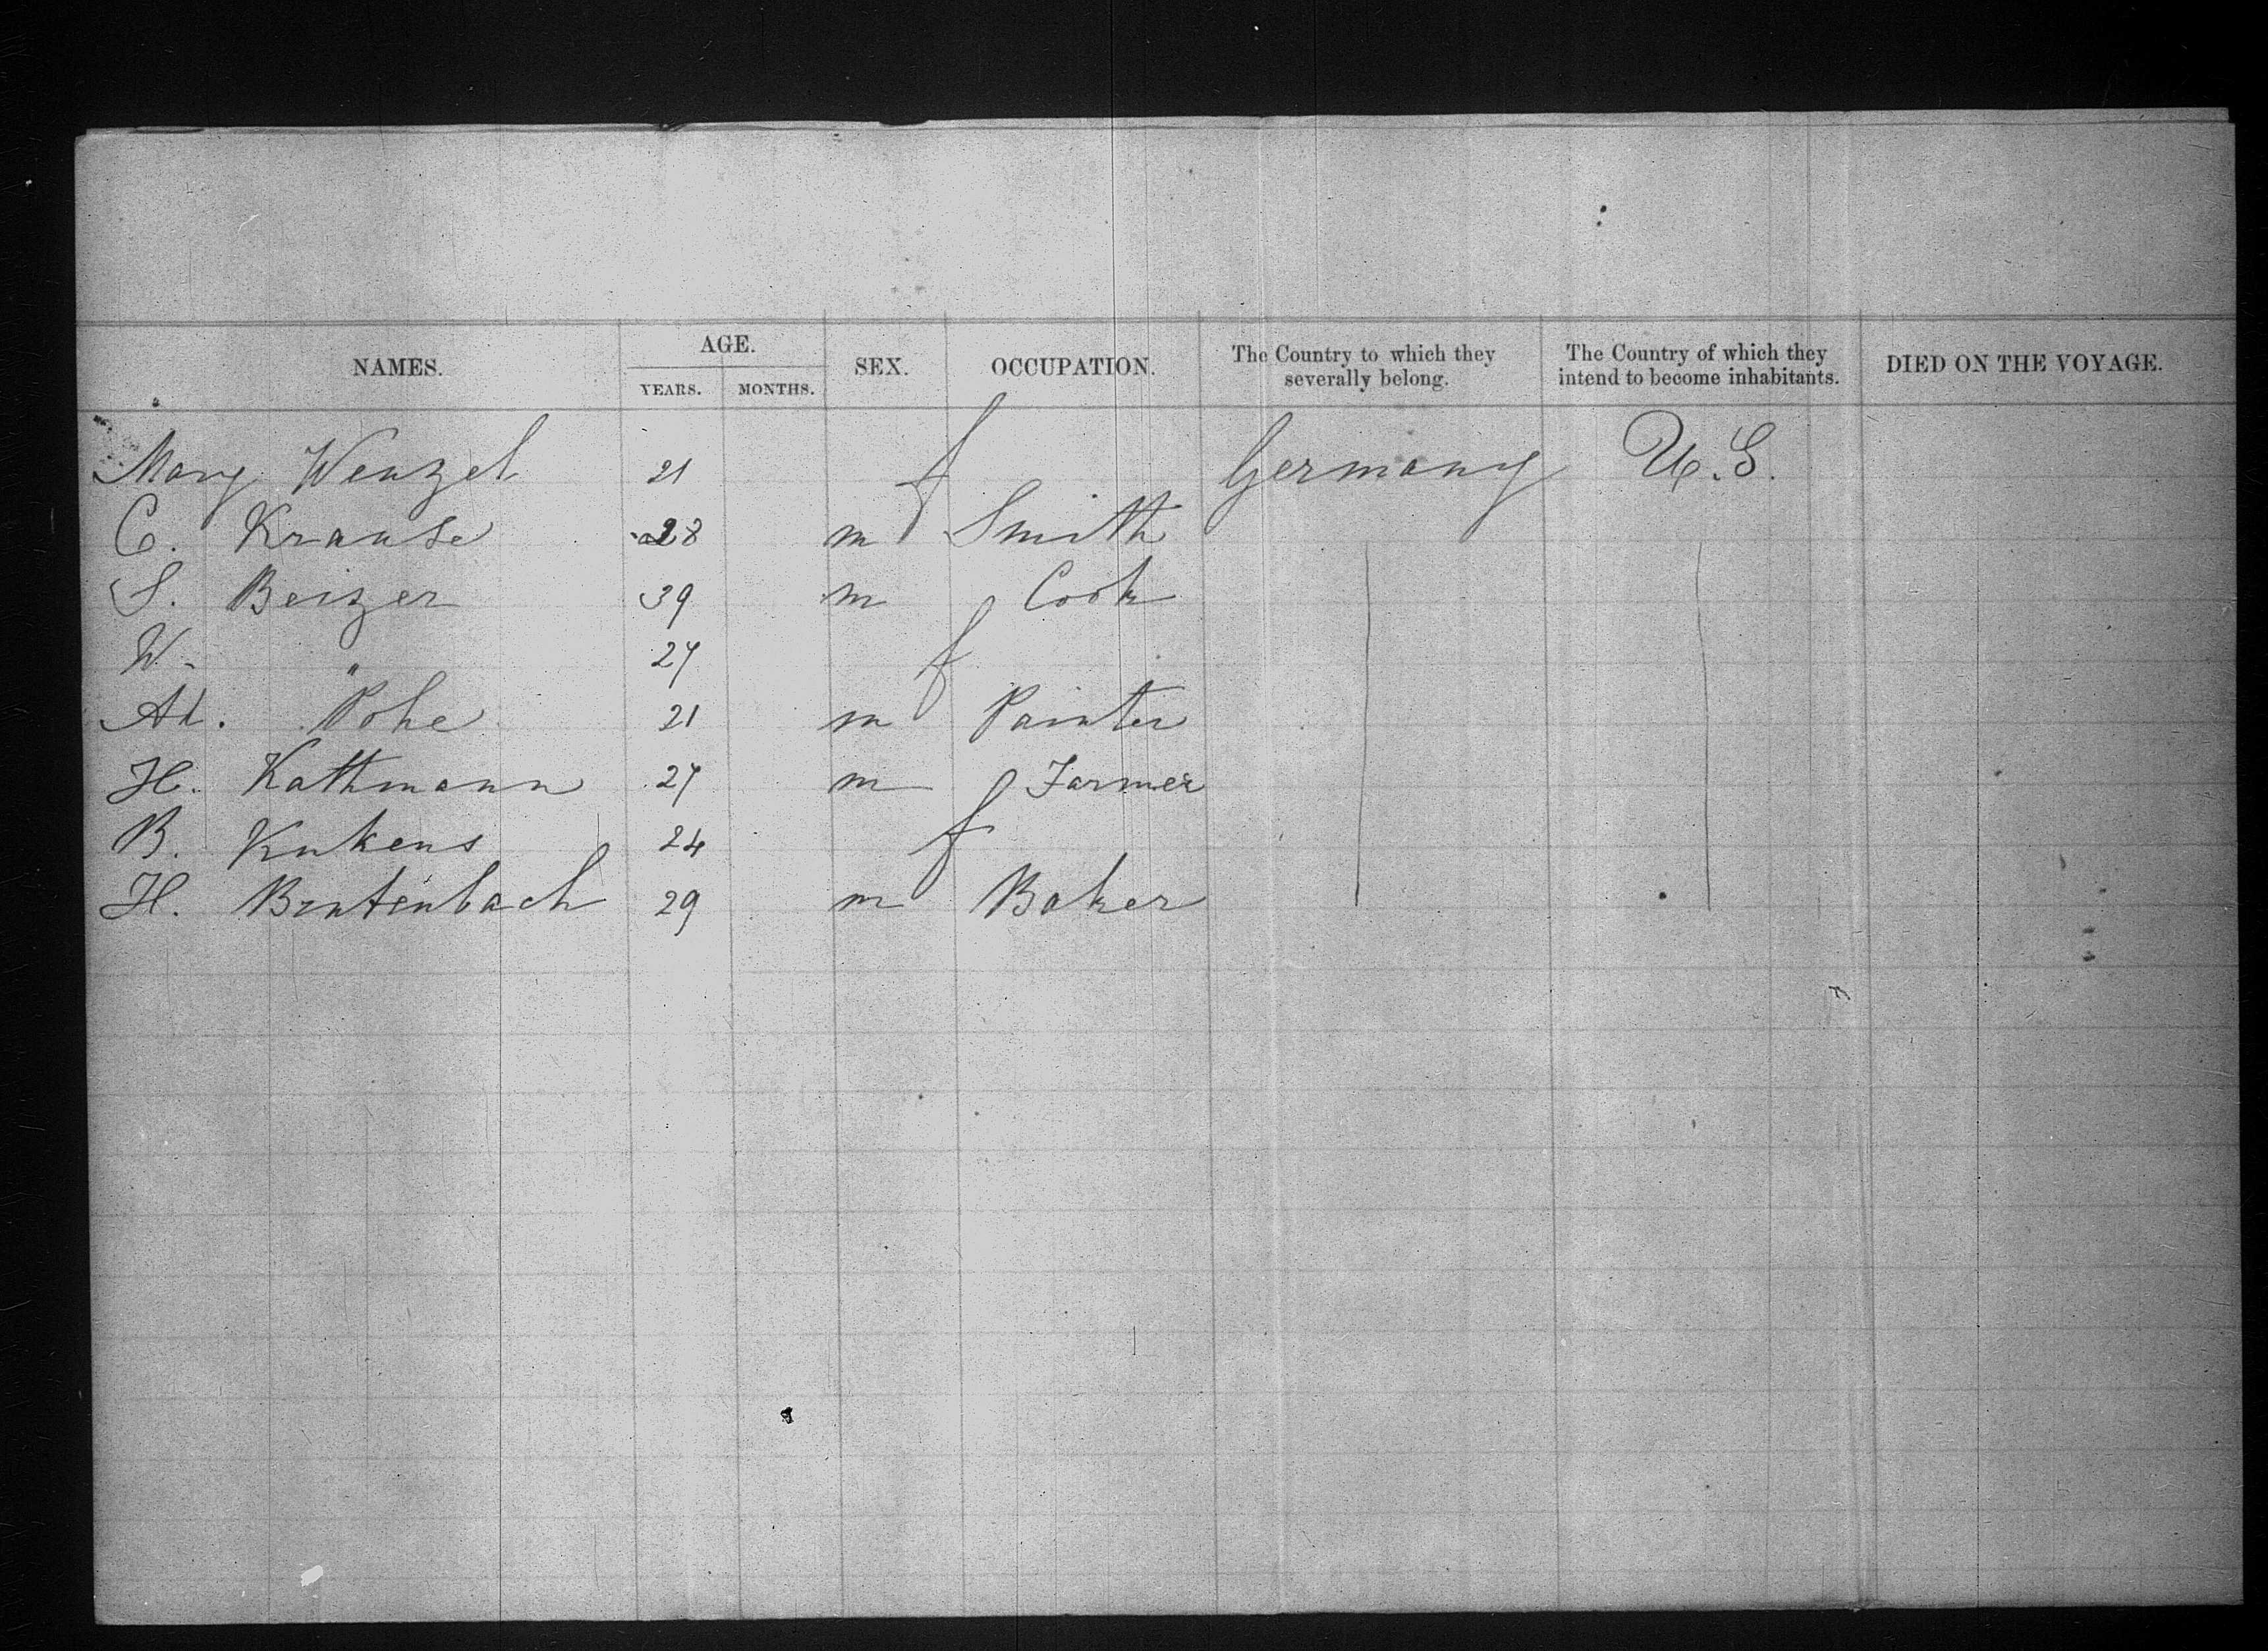 NAMES. AGE. SEX. OCCUPATION. The Country to which they severally belong. The Country of which they intend to become inhabitants. DIED ON THE VOYAGE.
YEARS. MONTHS.
Mary Wenzel 21 f Germany U.S.
C. Krause 28 m Smith
S. Beizer 39 m Cook
W. " 27 f
Ad. Pohe 21 m Painter
H. Kathmann 27 m Farmer
B. Kukens 24 f
H. Brutenbach 29 m Baker